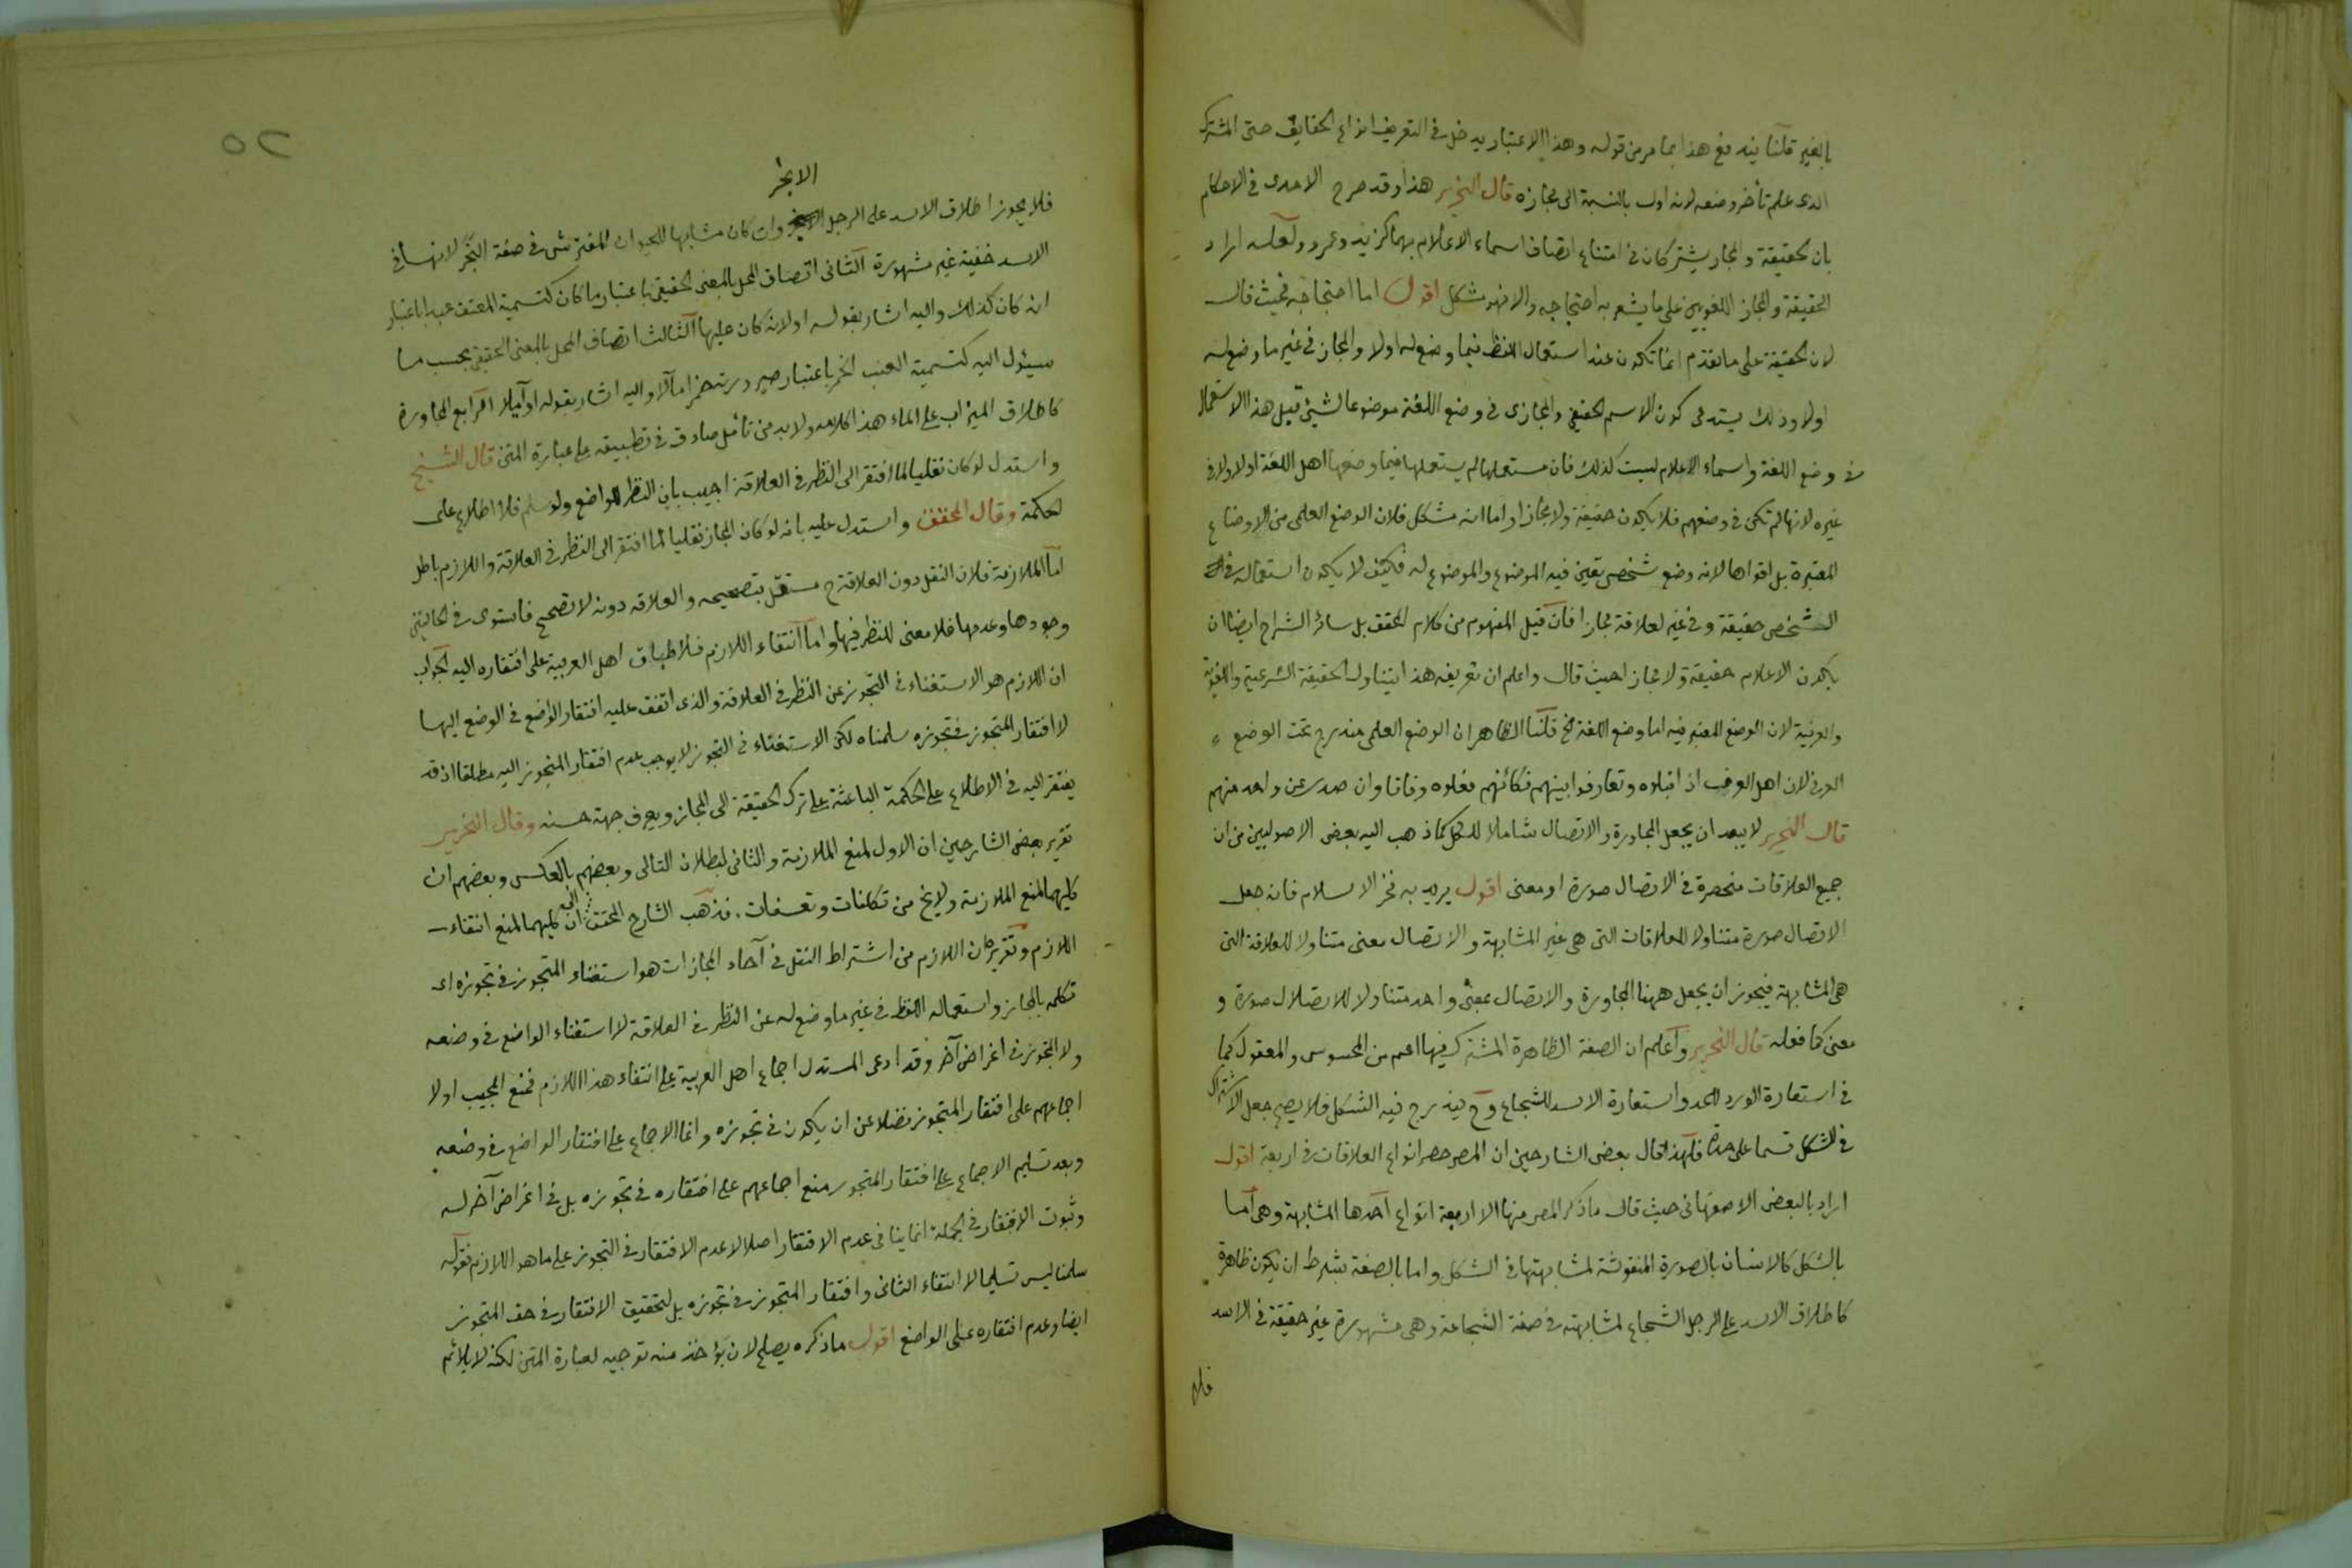 بالغير قلنا يندفع هذا بما مر من قوله وهذا الاعتبار يدخل في التعريف انواع الحقايق حتى المشترك
الذى علم تأخر وضعه لانه اول بالنسبة الى مجازه قال النحرير هذا وقد صرح الامدى في الاحكام
بان الحقيقة والمجاز يشتركان في امتناع اتصاف اسماء الاعلام بهما كزيد وعمرو ولعله اراد
الحقيقة والمجاز اللغويين على ما يشعر به احتجاجه والا فهو مشكل اقول اما احتجاجه فحيث قال
لان الحقيقة على ما تقدم انما تكون عند استعمال اللفظ فيما وضع له اولا والمجاز في غير ما وضع له
اولا وذلك يستدعى كون الاسم الحقيقى والمجازى في وضع اللغة موضوعا لشيئ قبل هذا الاستعمال
في وضع اللغة واسماء الاعلام ليست كذلك فان مستعملها لم يستعملها فيما وضعها اهل اللغة اولا ولا في
غيره لانها لم تكن في وضعهم فلا يكون حقيقة ولا مجازا واما انه مشكل فلان الوضع العلمى من الاوضاع
المعتبرة بل اقواها لانه وضع شخصى يعين فيه الموضوع والموضوع له فكيف لا يكون استعماله في
الشخص حقيقة وفي غيره لعلاقة مجازا فان قيل المفهوم من كلام المحقق بل سائر الشراح ايضا ان
يكون الاعلام حقيقة ولا مجازا حيث قال واعلم ان تعريفه هذا يتناول الحقيقة الشرعية واللغوية
والعرفية لان الوضع المعتبر فيه اما وضع اللغة الخ قلنا الظاهر ان الوضع العلمى مندرج تحت الوضع
العرفى لان اهل العرف اذا قبلوه وتعارفوا بينهم فكأنهم فعلوه وفاقا وان صدر عن واحد منهم
قال النحرير لا يبعد ان يجعل المجاورة والاتصال شاملا للكل كما ذهب اليه بعض الاصوليين من ان
جميع العلاقات منحصرة في الاتصال صورة او معنى اقول يريد به فخر الاسلام فانه جعل
الاتصال صورة متناولا للعلاقات التى هى غير المشابهة والاتصال معنى متناولا للعلاقة التى
هى المشابهة فيجوز ان يجعل ههنا المجاورة والاتصال بمعنى واحد متناولا للاتصال صورة و
معنى كما فعله قال النحرير واعلم ان الصفة الظاهرة المشترك فيها اعم من المحسوس والمعقول كما
في استعارة الورد للخد واستعارة الاسد للشجاع وح يندرج فيه الشكل فلا يصح جعل الاشتراك
في الشكل قسما على حدة فلهذا قال بعض الشارحين ان المص حصر انواع العلاقات في اربعة اقول
اراد بالبعض الاصفهانى حيث قال ما ذكر المص منها الا اربعة انواع احدها المشابهة وهى اما
بالشكل كالانسان بالصورة المنقوشة لمشابهتها في الشكل واما بالصفة بشرط ان يكون ظاهرة
كاطلاق الاسد على الرجل الشجاع لمشابهته في صفة الشجاعة وهى مشهورة غير حقيقة في الاسد
فلا
٥٢
الابخر
فلا يجوز اطلاق الاسد على الرجل وان كان مشابها للحيوان المفترس في صفة البخر لانها في
الاسد خفية غير مشهورة الثانى اتصاف المحل بالمعنى الحقيقى باعتبار ما كان كتسمية المعتق عبدا باعتبار
انه كان كذلك واليه اشار بقوله او لانه كان عليها الثالث اتصاف المحل بالمعنى الحقيقى بحسب ما
سيئول اليه كتسمية العنب الخمر باعتبار صيرورته خمرا مآلا واليه اشار بقوله او آيلا الرابع المجاورة
كاطلاق الميزاب على الماء هذا كلامه ولا بد من تأمل صادق في تطبيقه على عبارة المتن قال الشيخ
واستدل لو كان نقليا لما افتقر الى النظر في العلاقة اجيب بان النظر للواضع ولو سلم فلا اطلاع على
الحكمة وقال المحقق واستدل عليه بانه لو كان المجاز نقليا لما افتقر الى النظر في العلاقة واللازم باطل
اما الملازمة فلان النقل دون العلاقة ح مستقل بتصحيحه والعلاقة دونه لا تصحح فاستوى في الحالين
وجودها وعدمها فلا معنى للنظر فيها واما انتفاء اللازم فلاطباق اهل العربية على افتقاره اليه الجواب
ان اللازم هو الاستغناء في التجوز عن النظر في العلاقة والذى اتفق عليه افتقار الواضع في الوضع اليها
لا افتقار المتجوز في تجوزه سلمناه لكن الاستغناء في التجوز لا يوجب عدم افتقار المتجوز اليه مطلقا اذ قد
يفتقر اليه في الاطلاع على الحكمة الباعثة على ترك الحقيقة الى المجاز ويعرف جهة حسنه وقال النحرير
تقرير بعض الشارحين ان الاول لمنع الملازمة والثانى لبطلان التالى وبعضهم بالعكس وبعضهم ان
كليهما لمنع الملازمة ولا يخ من تكلفات وتعسفات فذهب الشارح المحقق الى ان كليهما لمنع انتفاء
اللازم وتقريره ان اللازم من اشتراط النقل في آحاد المجازات هو استغناء المتجوز في تجوزه اى
تكلمه بالمجاز واستعماله اللفظ في غير ما وضع له عن النظر في العلاقة لا استغناء الواضع في وضعه
ولا المتجوز في اغراض آخر وقد ادعى المستدل اجماع اهل العربية على انتفاء هذا اللازم فمنع المجيب اولا
اجماعهم على افتقار المتجوز فضلا عن ان يكون في تجوزه وانما الاجماع على افتقار الواضع في وضعه
وبعد تسليم الاجماع على افتقار المتجوز منع اجماعهم على افتقاره في تجوزه بل في اغراض آخر له
وثبوت الافتقار في الجملة انما ينافى عدم الافتقار اصلا لا عدم الافتقار في التجوز على ما هو اللازم فقوله
سلمنا ليس تسليما لانتفاء الثانى وافتقار المتجوز في تجوزه بل لتحقيق الافتقار في حق المتجوز
ايضا وعدم افتقاره على الواضع اقول ما ذكره يصلح لان يؤخذ منه توجيه لعبارة المتن لكنه لا يلائم